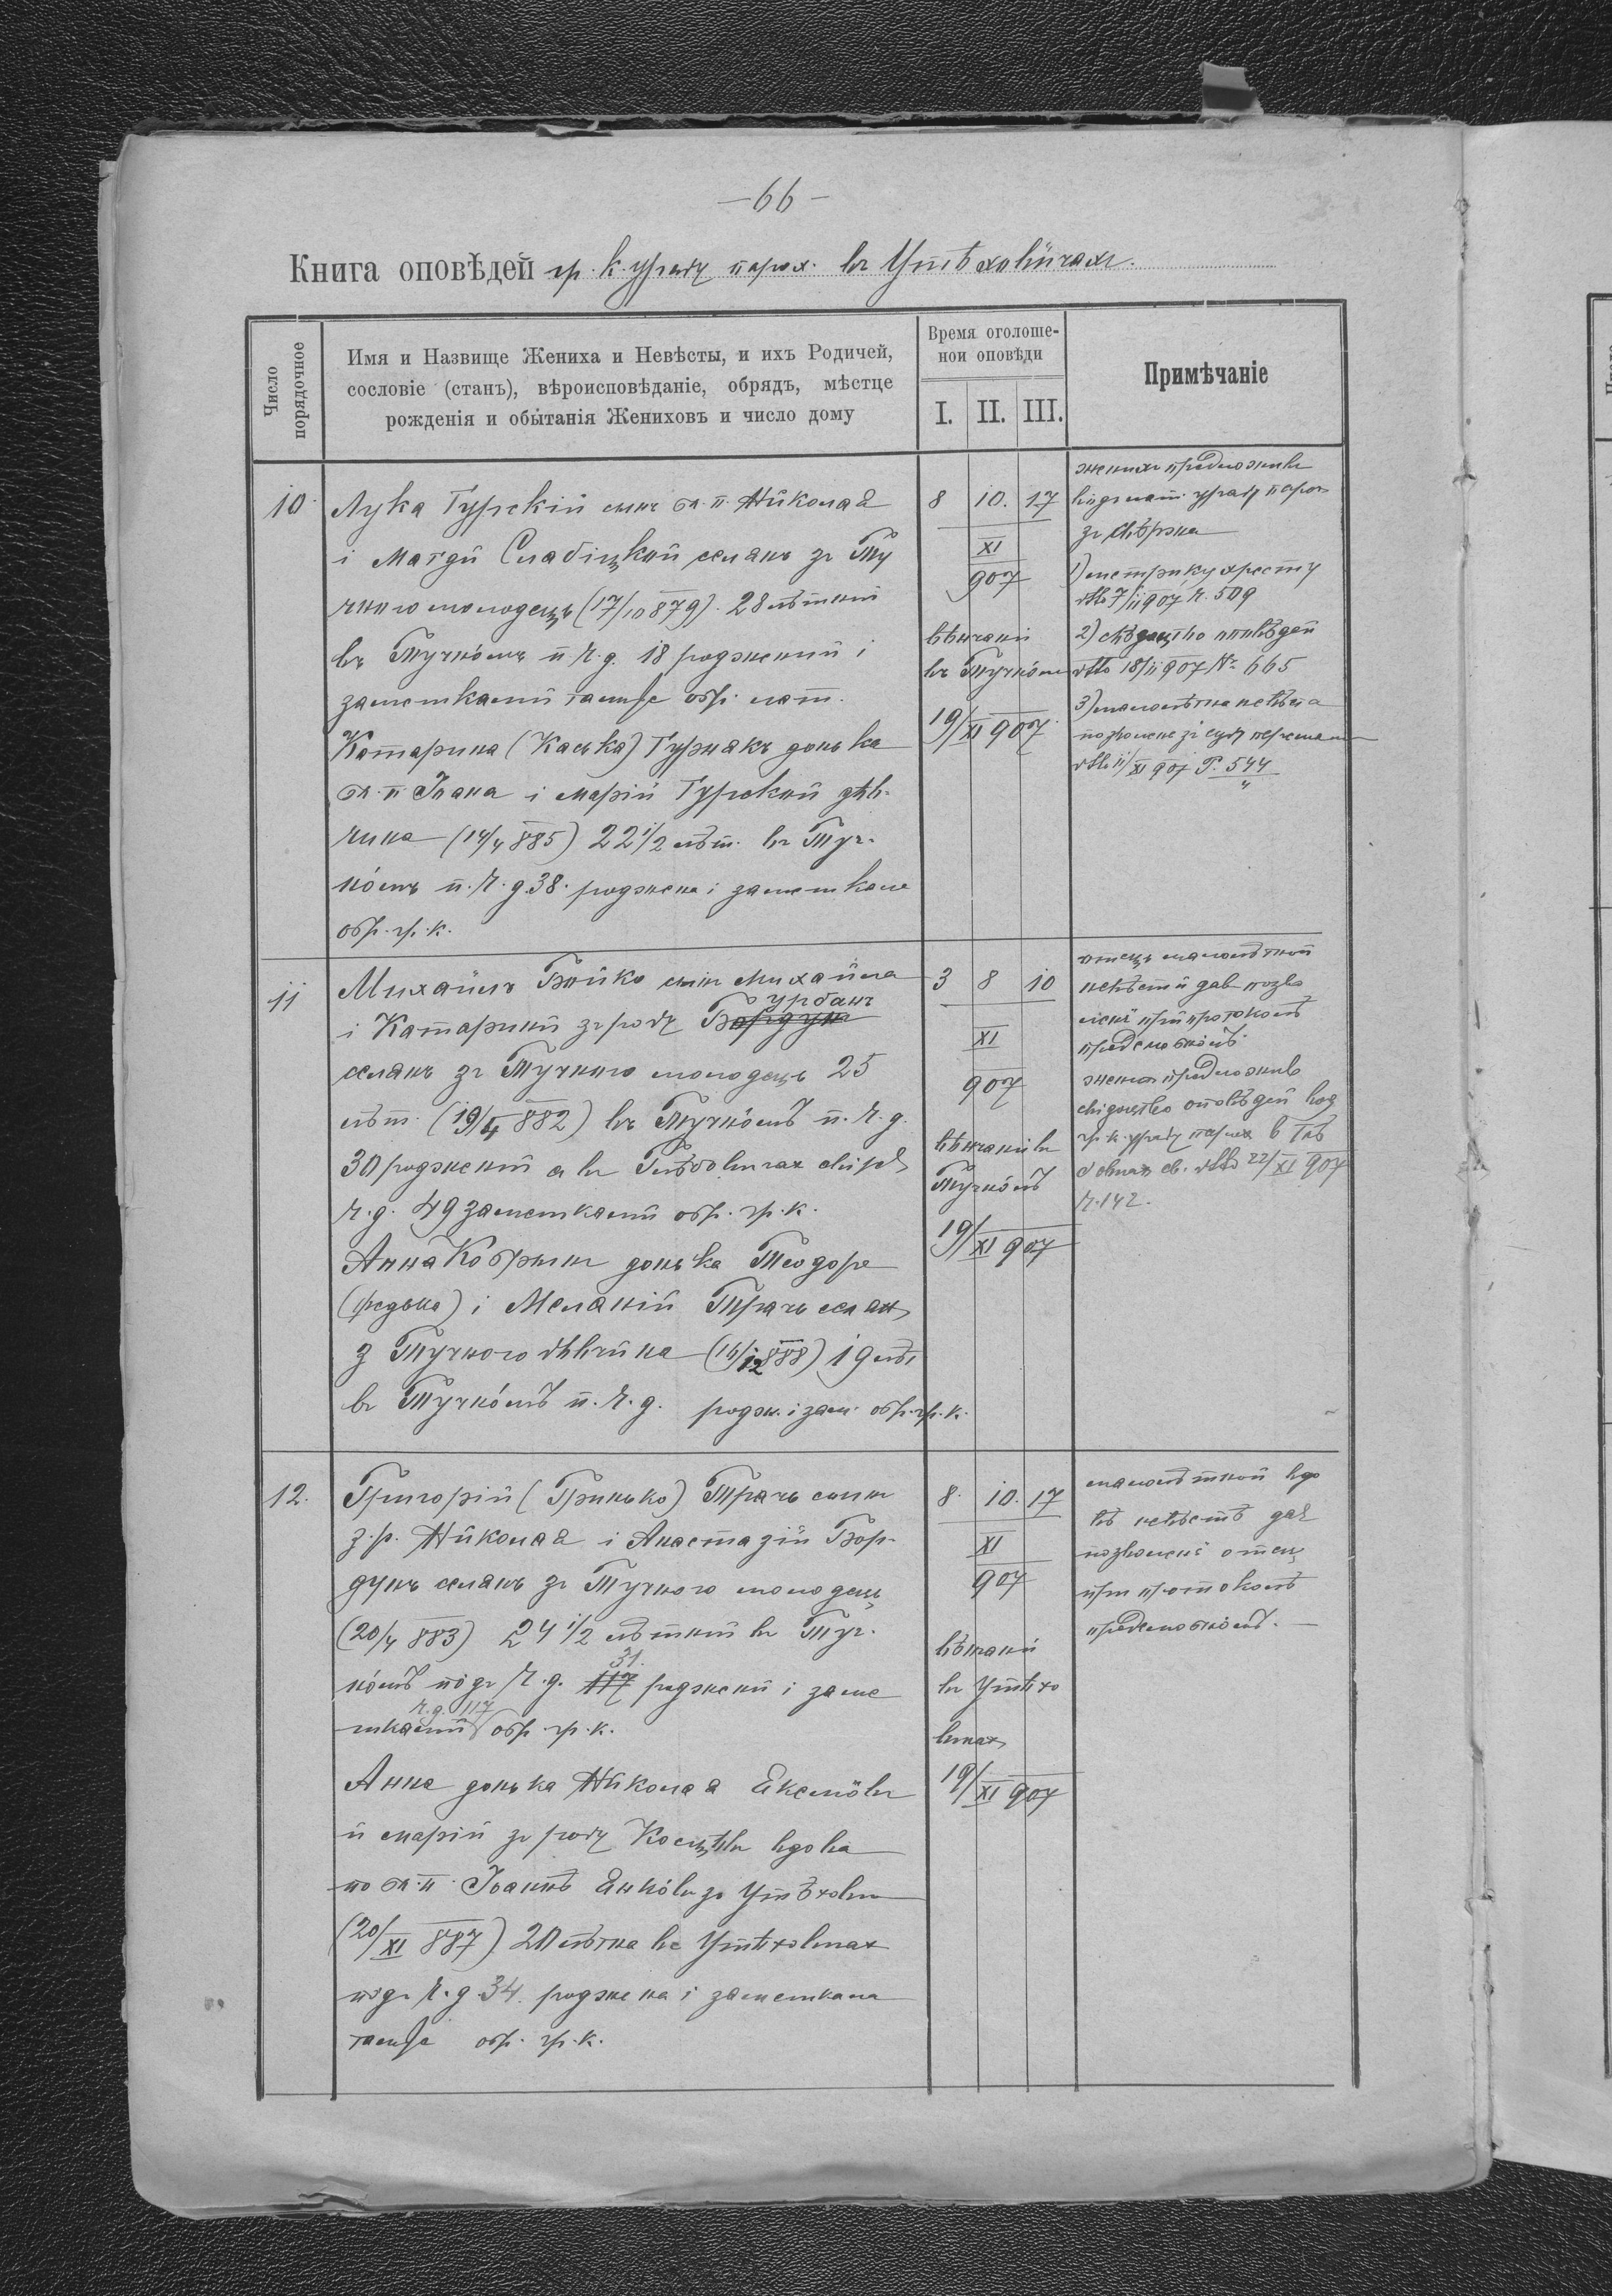 —66—
Книга оповѣдей гр. к. уряду парох. въ Утѣховичахъ.
Число порядочное
Имя и Назвище Жениха и Невѣсты, и ихъ Родичей,
сословіе (станъ), вѣроисповѣданіе, обрядъ, мѣстце
рожденія и обытанія Жениховъ и число дому
Время оголоше-
нои оповѣди
I. II. III.
Примѣчаніе
10
Лука Гурскій сынъ бл. п. Николая
і Магди Слабіцкои селянъ зъ Ту
чного молодецъ (17/10 879). 28 лѣтній
въ Тучнôмъ п. ч. д. 18 родженый і
замешкалый тамже обр. лат.
Катарина (Каська) Гурнякъ донька
бл. п Івана і Маріи Гурскои дѣв-
чина (14/4 885) 22 1/2 лѣт. въ Туч-
нôмъ п. ч. д. 38. роджена і замешкала
обр. гр. к.
8 10. 17
XI
907
вѣнчаній
въ Тучнôм
19/XI 907.
женихъ предложивъ
лат. уряду парох
1) метрику хресту
ddto 7/11 907 ч. 509
2) свѣдоцтво оповѣдей
ddto 18/11 907 № 665
3) малолѣтна невѣста
ddto 11/XI 907 P. 544
11
Михаилъ Бойко сынъ Михаила
урбанъ
і Катарини зъ роду Бордунъ
селянъ зъ Тучного молодецъ 25
лѣт. (19/4 882) въ Тучнôмъ п. ч. д.
30 родженый а въ
ч. д. 49 замешкалый обр. гр. к.
Анна Кобрынъ донька Теодора
(Федька) і Меланіи Трачъ селян
з Тучного дѣвчина (16/12 888) 19 лѣт
въ Тучнôмъ п. ч. д. родж. і зам. обр. гр. к.
3 8 10
XI
907
вѣнчаній въ
Тучнôмъ
19/XI 907
отецъ малолѣтной
невѣсты дав позво
леня при протоколѣ
женихъ предложивъ
свідоцтво оповѣдей вод
гр. к. уряду парох в
ddto 22/XI 907
ч. 142.
12.
Григорій (Гринько) Трачъ сынъ
з. р. Николая і Анастазіи Бор-
дунъ селянъ зъ Тучного молодецъ
(20/4 883) 24 1/2 лѣтній въ Туч-
31.
нôмъ пôдъ ч. д. 117 родженый і заме
ч. д. 117
шкалый обр. гр. к.
Анна донька Николая
и Маріи зъ роду вдова
по бл. п. Іоаннѣ Янкôвъ зъ Утѣхович
(20/XI 887) 20 лѣтна въ Утѣховичах
пôдъ ч. д. 34. роджена і замешкала
тамже обр. гр. к.
8. 10. 17
XI
907
вѣнчаній
въ Утѣхо
вичах
19/XI 907
малолѣтной вдо
вѣ невѣстѣ дав
позволеня отец
при протоколѣ